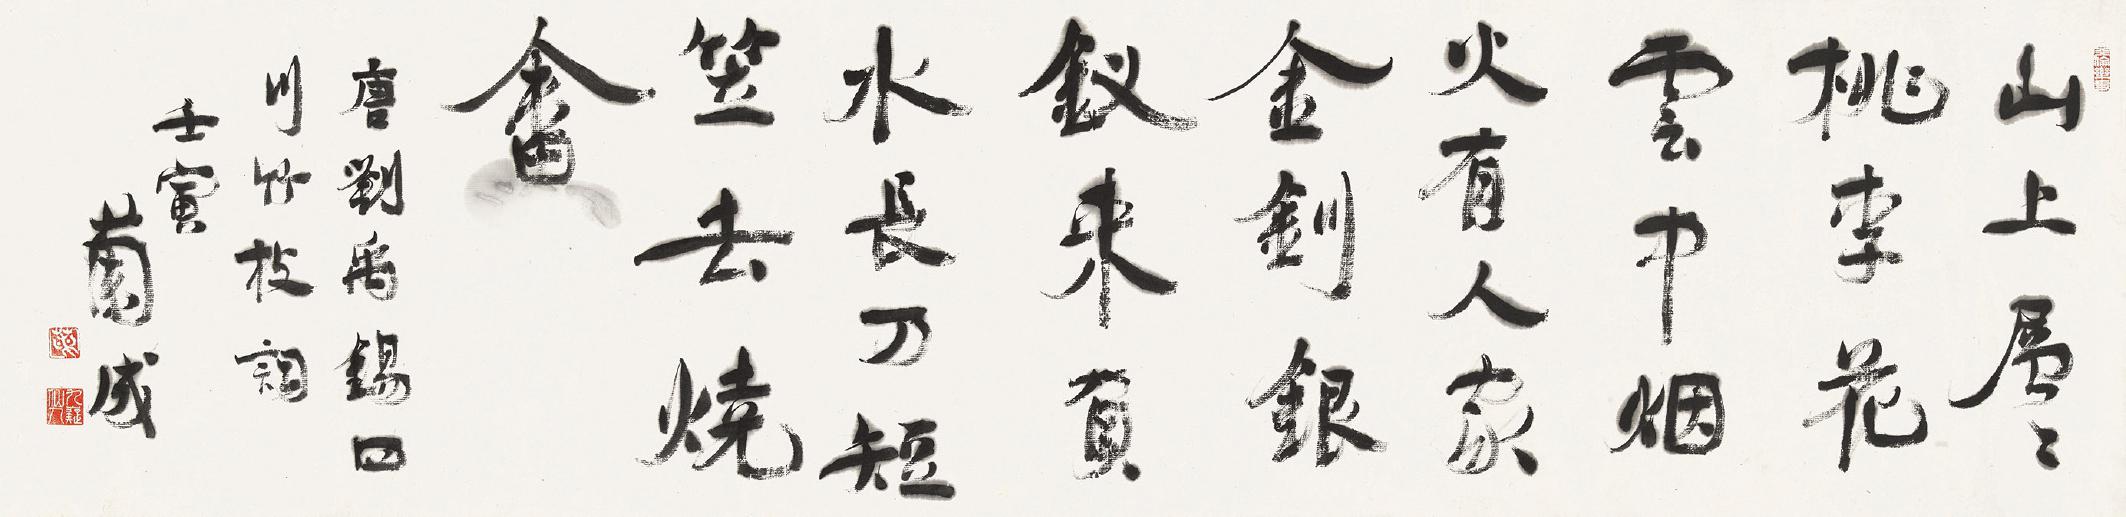 山上層〻
桃李花
雲中烟
火有人家
金釧銀
釵来負
水長刀短
笠去燒
畬
唐劉禹錫四
川竹枝詞
壬寅
蘭成